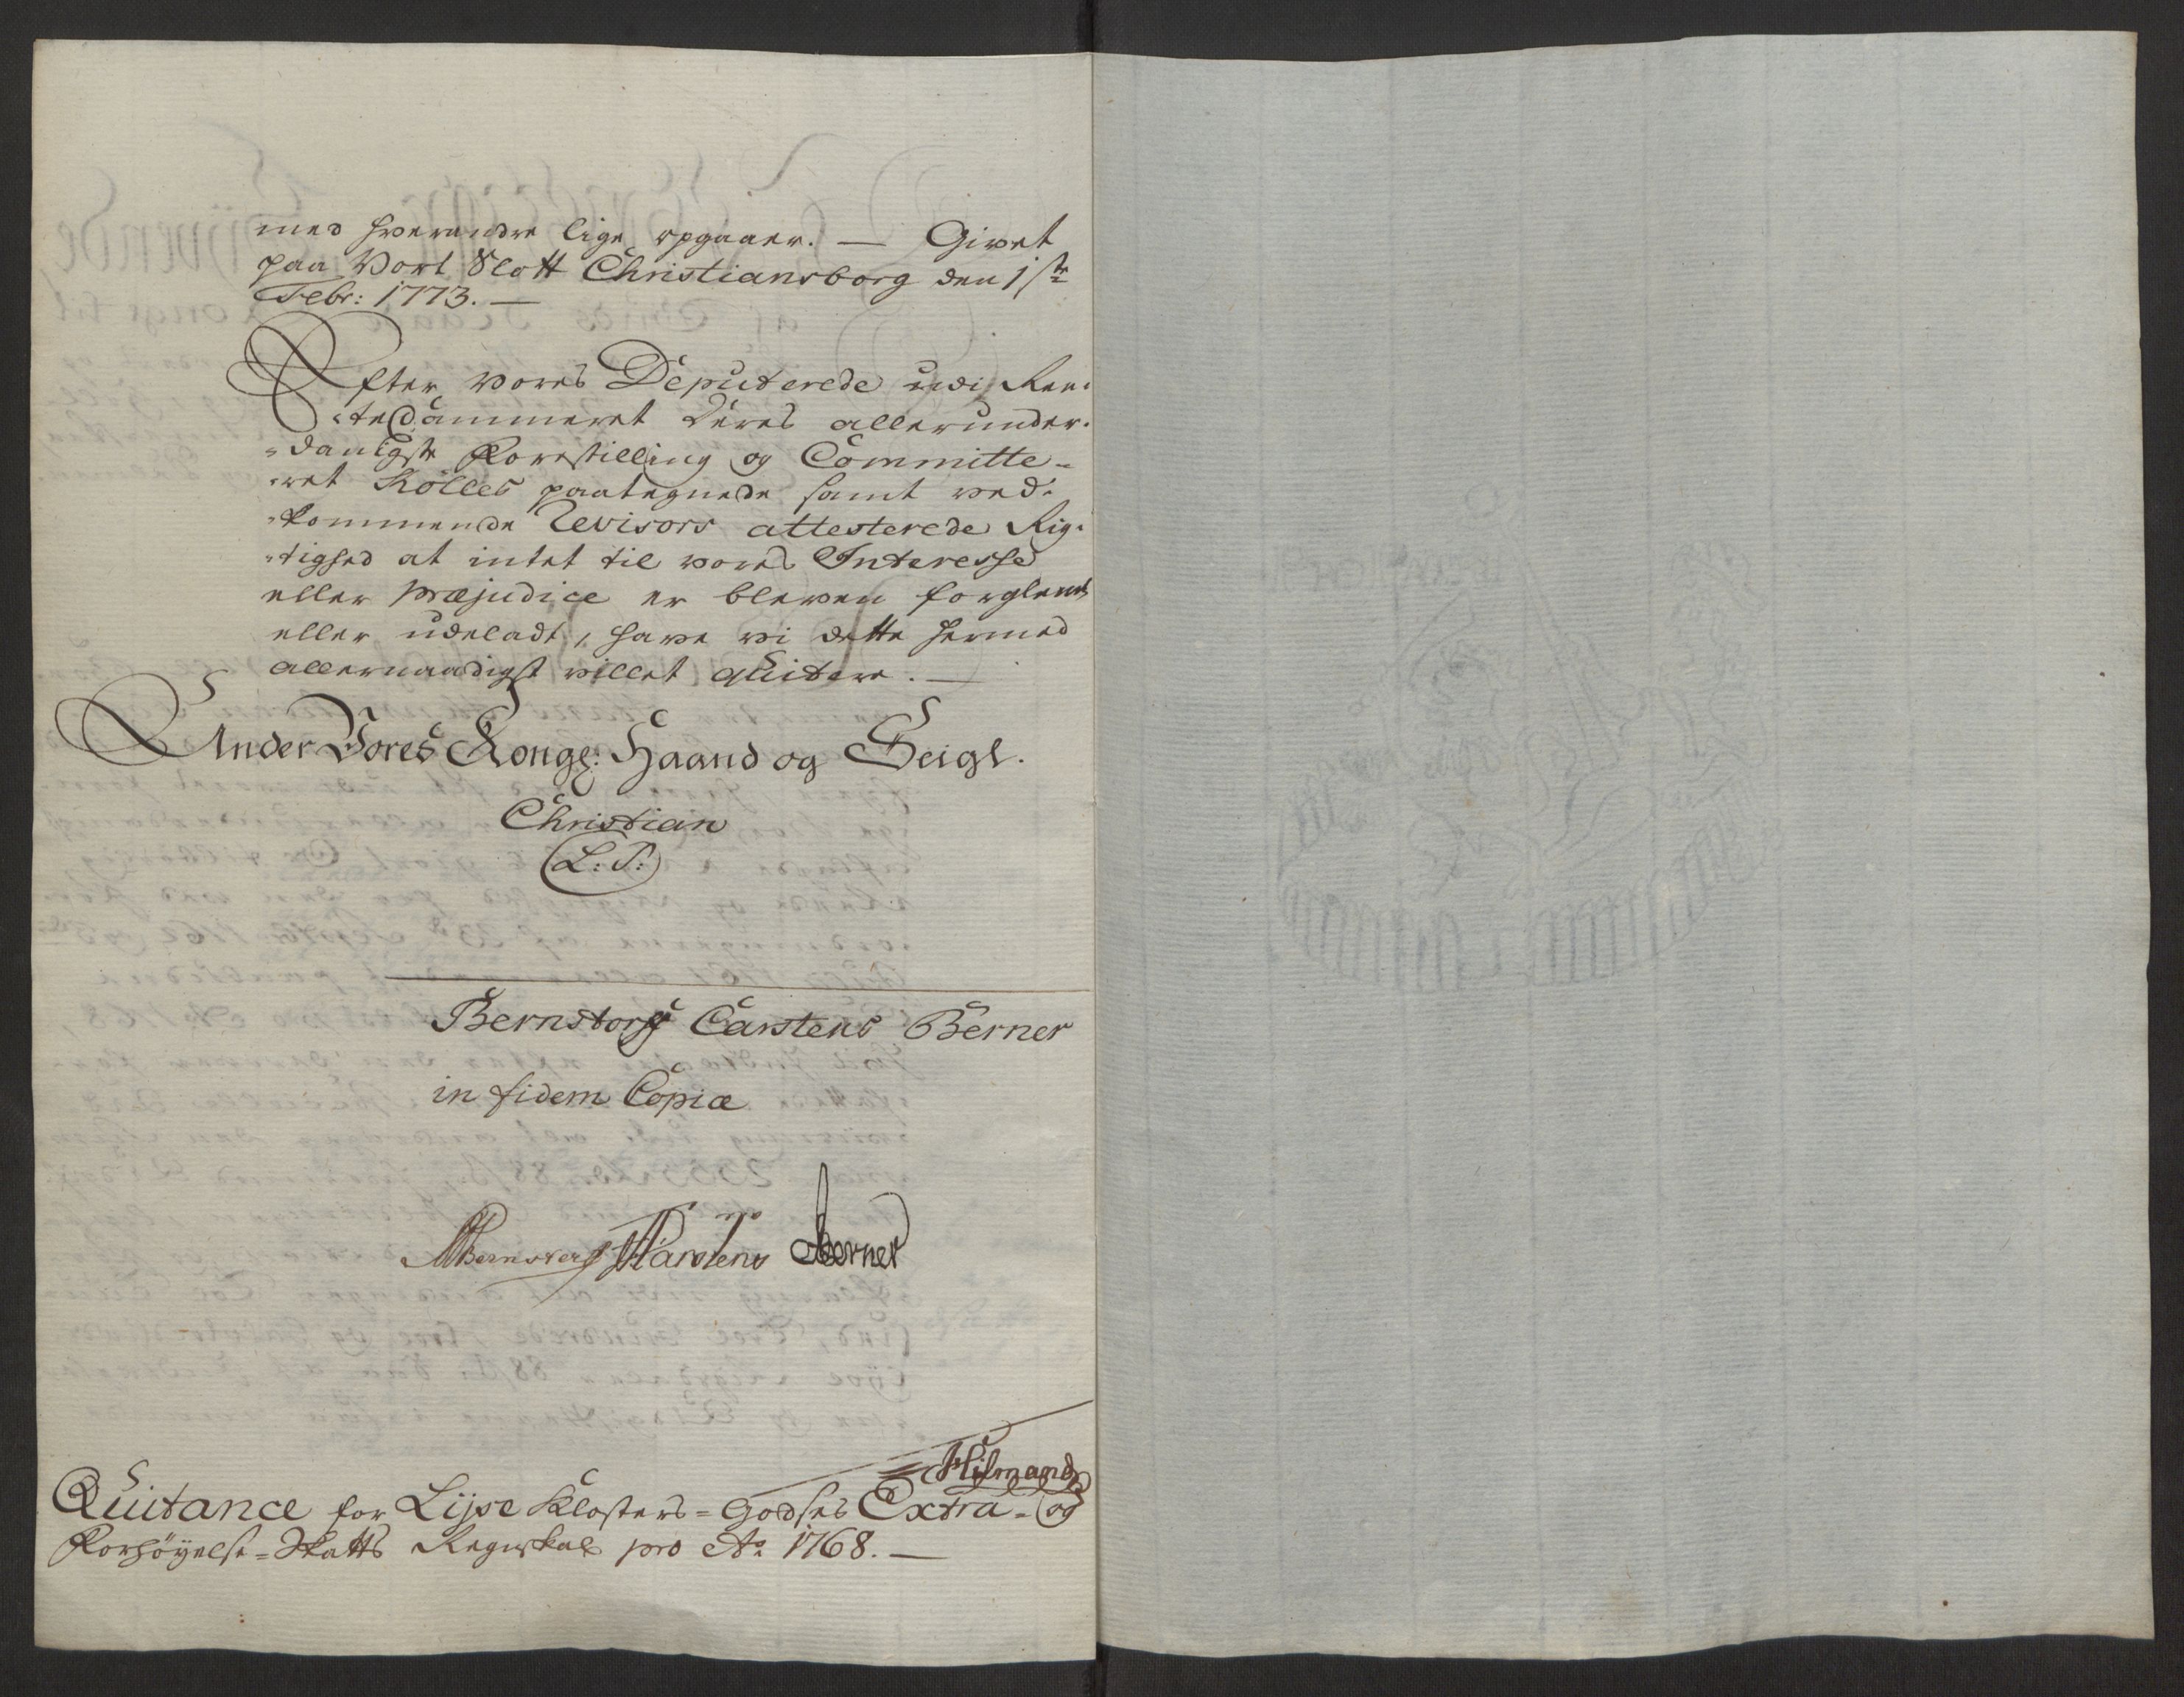 med hverandre lige opgaaer. — Givet
paa Vort Slott Christiansborg den 1ste
Febr: 1773. —
Efter vores Deputerede udi Ren-
tecammeret deres allerunder-
danigste Forestilling og Committe-
ret Kölles paategnede samt ved-
kommende Revisors attesterede Rig-
tighed at intet til vores Interesse
eller præjudice er bleven forglemt
eller udeladt, have vi dette hermed
allernaadigst villet qvitere. —
Under Vores Kongl: Haand og Seigl.
Christian
(L: S:)
Bernstorff Carstens Berner
in fidem Copiæ
Bernstorff Carstens Berner
Quitance for Lyse Klosters-Godses Extra- og
Forhöyelse-Skatts Regnskab pro Ao 1768. —